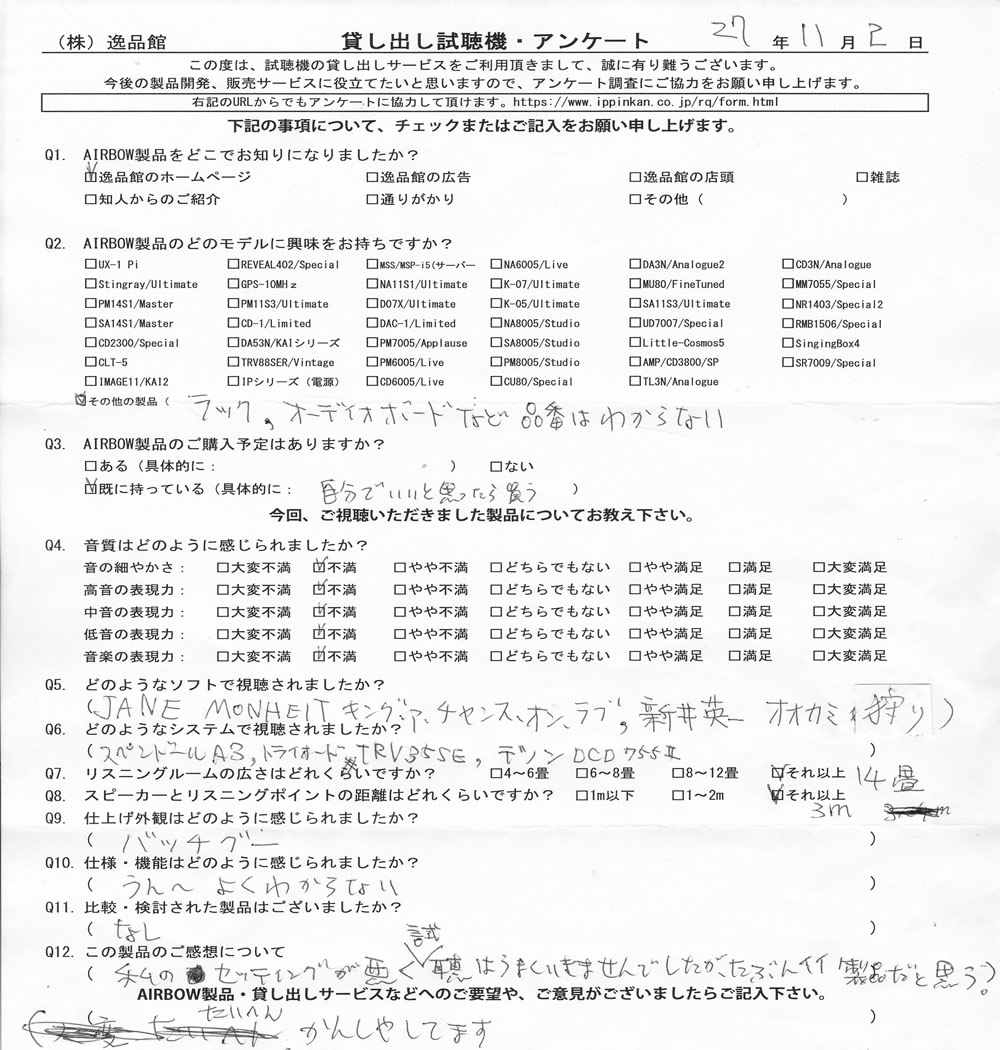 (株)逸品館 貸し出し試聴機・アンケート 27 年 11 月 2 日
この度は、試聴機の貸し出しサービスをご利用頂きまして、誠に有り難うございます。
今後の製品開発、販売サービスに役立てたいと思いますので、アンケート調査にご協力をお願い申し上げます。
右記のURLからでもアンケートに協力して頂けます。https://www.ippinkan.co.jp/rq/form.html
下記の事項について、チェックまたはご記入をお願い申し上げます。
Q1. AIRBOW製品をどこでお知りになりましたか?
☑逸品館のホームページ □逸品館の広告 □逸品館の店頭 □雑誌
□知人からのご紹介 □通りがかり □その他( )
Q2. AIRBOW製品のどのモデルに興味をお持ちですか?
□UX-1 Pi □REVEAL402/Special □MSS/MSP-i5(サーバー □NA6005/Live □DA3N/Analogue2 □CD3N/Analogue
□Stingray/Ultimate □GPS-10MHz □NA11S1/Ultimate □K-07/Ultimate □MU80/FineTuned □MM7055/Special
□PM14S1/Master □PM11S3/Ultimate □DO7X/Ultimate □K-05/Ultimate □SA11S3/Ultimate □NR1403/Special2
□SA14S1/Master □CD-1/Limited □DAC-1/Limited □NA8005/Studio □UD7007/Special □RMB1506/Special
□CD2300/Special □DA53N/KAIシリーズ □PM7005/Applause □SA8005/Studio □Little-Cosmos5 □SingingBox4
□CLT-5 □TRV88SER/Vintage □PM6005/Live □PM8005/Studio □AMP/CD3800/SP □SR7009/Special
□IMAGE11/KAI2 □IPシリーズ(電源) □CD6005/Live □CU80/Special □TL3N/Analogue
☑その他の製品( ラック、オーディオボードなど 品番はわからない
Q3. AIRBOW製品のご購入予定はありますか?
□ある(具体的に: ) □ない
☑既に持っている(具体的に: 自分でいいと思ったら買う )
今回、ご視聴いただきました製品についてお教え下さい。
Q4. 音質はどのように感じられましたか?
音の細やかさ: □大変不満 ☑不満 □やや不満 □どちらでもない □やや満足 □満足 □大変満足
高音の表現力: □大変不満 ☑不満 □やや不満 □どちらでもない □やや満足 □満足 □大変満足
中音の表現力: □大変不満 ☑不満 □やや不満 □どちらでもない □やや満足 □満足 □大変満足
低音の表現力: □大変不満 ☑不満 □やや不満 □どちらでもない □やや満足 □満足 □大変満足
音楽の表現力: □大変不満 ☑不満 □やや不満 □どちらでもない □やや満足 □満足 □大変満足
Q5. どのようなソフトで視聴されましたか?
(JANE MONHEIT キング、ア、チャンス、オン、ラブ、新井英一 オオカミ狩り)
Q6. どのようなシステムで視聴されましたか?
(スペンドールA3、トライオード TRV35SE、デノンDCD755Ⅱ )
Q7. リスニングルームの広さはどれくらいですか? □4~6畳 □6~8畳 □8~12畳 ☑それ以上 14畳
Q8. スピーカーとリスニングポイントの距離はどれくらいですか? □1m以下 □1~2m ☑それ以上 3m
Q9. 仕上げ外観はどのように感じられましたか?
( バッチグー )
Q10. 仕様・機能はどのように感じられましたか?
( うん~ よくわからない )
Q11. 比較・検討された製品はございましたか?
( なし )
Q12. この製品のご感想について
( 私の セッティングが悪く試聴はうまくいきませんでしたが、たぶんイイ製品だと思う。)
AIRBOW製品・貸し出しサービスなどへのご要望や、ご意見がございましたらご記入下さい。
( たいへん かんしゃしてます )